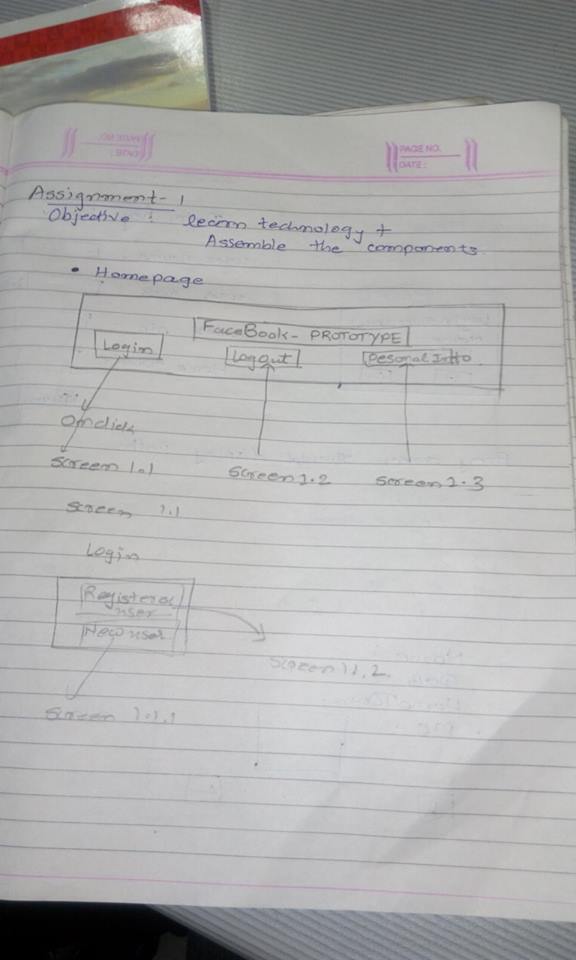 PAGE NO.
DATE:
Assignment-1
Objective: learn technology +
Assemble the components
• Homepage
FaceBook- PROTOTYPE
Login
Logout
Pesonal Info
On click
Screen 1.1
Screen 1.2
Screen 1.3
Screen 1.1
Login
Registered
user
New user
Screen 1.1.2
Screen 1.1.1